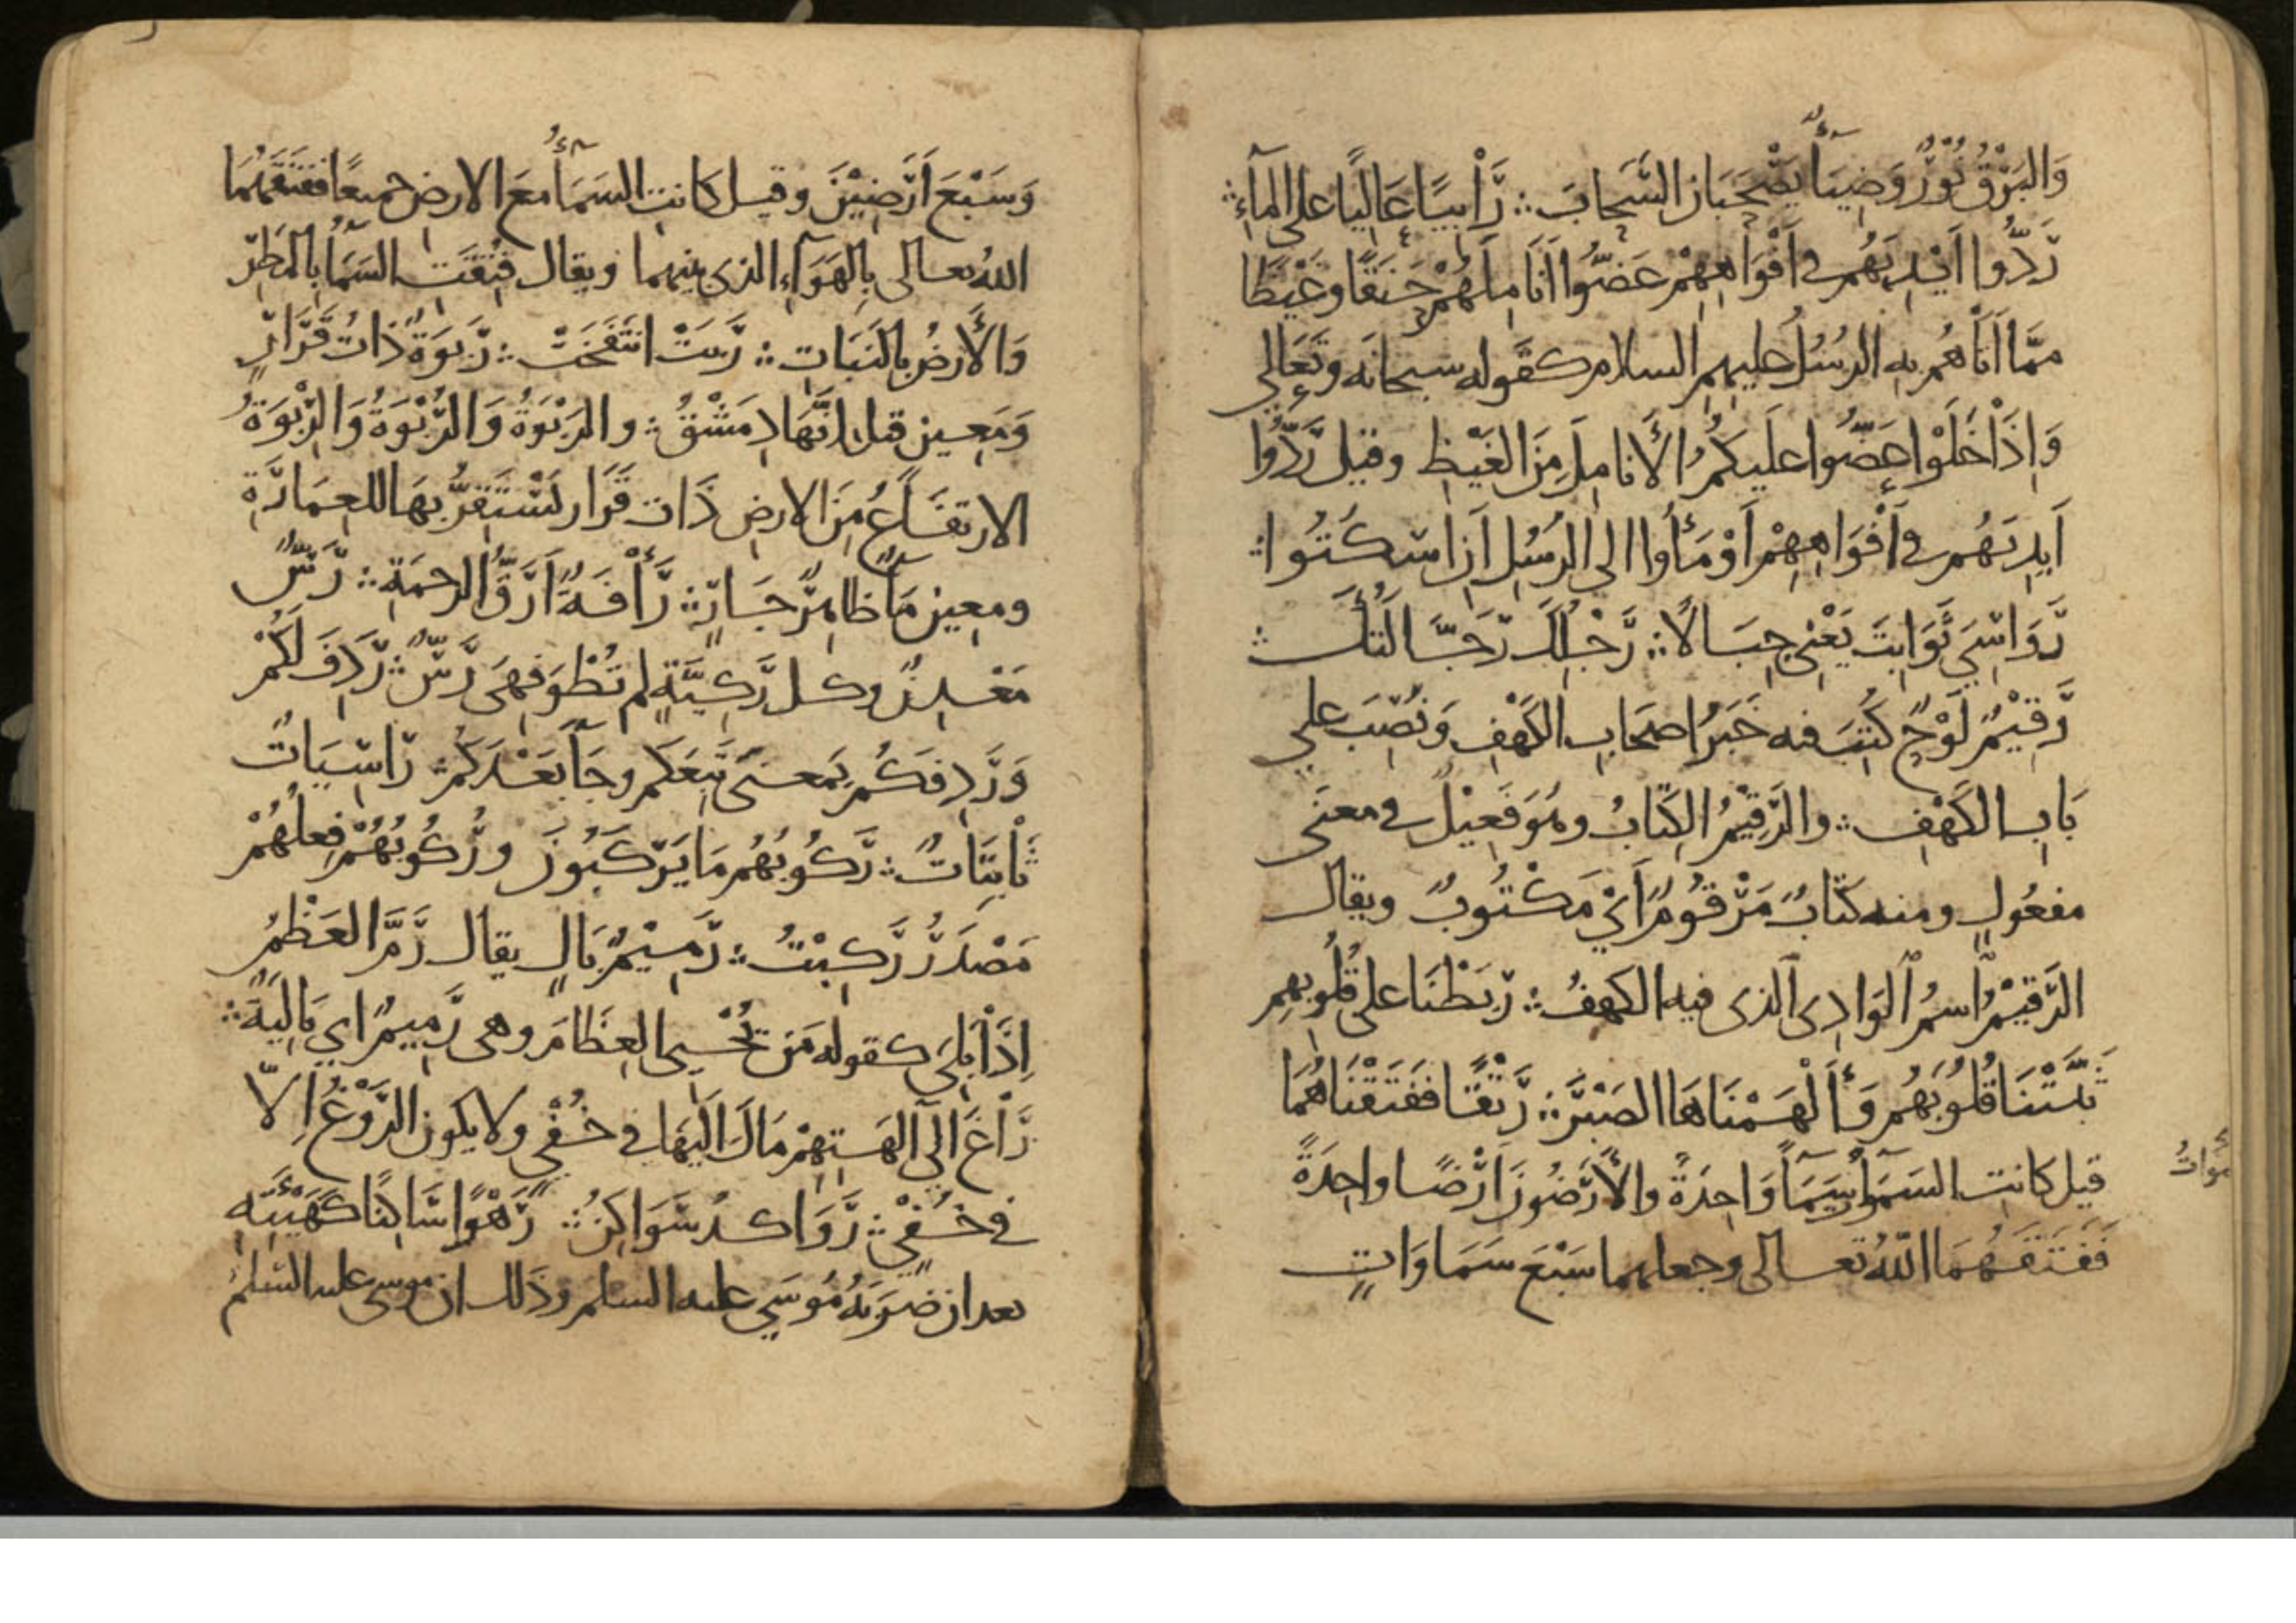 وَالبَرْقُ نُوْرٌ وَضِيَآءٌ يَصْحَبَانِ السَّحَابَ ∴ رَّابِيًا عَالِيًا على المآءِ ∴
رَدُّوا اَيْدِيَهُم في اَفْوَاهِهِمْ عَضُّوا اَنَامِلَهُمْ حَنَقًا وغَيْظًا
ممَّا اَتَاهُم بِهِ الرسُلُ عليهم السلام كقَوله سبحانَه وتَعَالى
وَاِذَا خَلَوْا عَضُّوا عَلَيكُمُ الأَنَامِلَ مِنَ الغَيْظِ وقيل رَدُّوا
اَيدِيَهُم في اَفْوَاهِهِمْ اَوْمَأُوا الى الرسُلِ اَن اسكُتُوا ∴
رَوَاسِيَ ثَوَابِتَ يَعْنِي جِبَالًا ∴ رَّجْلِكَ رَجَّالَتُكَ ∴
رَّقِيْمُ لَوْحٌ كُتِبَ فيه خَبَرُ اصحَابِ الكَهْفِ وَنُصِبَ على
بَابِ الكَهْفِ ∴ والرَّقِيْمُ الكِتَابُ وهُوَ فَعِيْلٌ في معنَى
مفعُولٍ ومنه كتَابٌ مَرْقُومٌ اَيْ مَكْتُوبٌ ويقال
الرَّقِيْمُ اسمُ الوَادِى الذى فيه الكهفُ ∴ رَبَطْنَا على قُلُوبِهِم
ثَبَّتْنَا قُلُوبَهُم وَأَلْهَمْنَاهَا الصَبْرَ ∴ رَتْقًا فَفَتَقْنَاهُمَا
قيل كَانتِ السَمَوَاتُ سَمَآءً وَاحِدَةً والأَرَضُونَ اَرْضًا واحِدَةً
فَفَتَقَهُمَا اللّٰهُ تعالى وجعلهما سَبْعَ سَمَاوَاتٍ
وَسَبْعَ اَرَضِيْنَ وقيل كانتِ السَمَآءُ معَ الارضِ جميعًا ففتَقَهُمَا
اللهُ تعالى بِالهَوَآءِ الذى بينهما ويقال فُتِقَتِ السَمَآءُ بِالمَطَرِ
وَالأَرضُ بِالنَبَاتِ ∴ رَبَتْ انتَفَخَتْ ∴ رَبوَةٌ ذَاتُ قَرَارٍ
وَمَعِينٍ قيل اِنَّهَا دِمَشْقُ ∴ والرَبْوَةُ وَالرُبْوَةُ وَالرِبْوَةُ
الارتفَاعُ مِنَ الارضِ ذَات قَرَار يَسْتَقِرُّ بِهَا للعِمَارَةِ
ومعِين مَآءٌ ظاهِرٌ جَارٍ ∴ رَأْفَةٌ اَرَقُّ الرحمَةِ ∴ رَسٌّ
مَعْدِنٌ وكل رَكِيَّةٍ لم تُطْوَ فهِىَ رَسٌّ ∴ رَدِفَ لَكُمْ
وَرَدِفَكُم بِمَعنَى تَبِعَكُم وجَآءَ بَعْدَكُم ∴ رَاسِيَاتٌ
ثَابِتَاتٌ ∴ رَكُوبُهُم مَا يَرْكَبُونَ ورُكُوبُهُمْ فِعلُهُمْ
مَصْدَرُ رَكِبْتُ ∴ رَمِيْمٌ بَالٍ يقال رَمَّ العَظْمُ
اِذَا بَلِىَ كقوله مَن يُحْيى العِظَامَ وهى رَمِيمٌ اي بَالِيَةٌ ∴
رَاغَ الى آلِهَتِهِمْ مَالَ اليْهَا في خُفْيٍ ولا يكون الرَوْغُ اِلّا
في خُفْيٍ ∴ رَوَاكدُ سَوَاكِنُ ∴ رَهْوًا سَاكِنًا كَهَيْئَتِهِ
بعد ان ضَرَبَهُ مُوسَى عليه السلم وذَلك ان موسى عليه السَلمُ